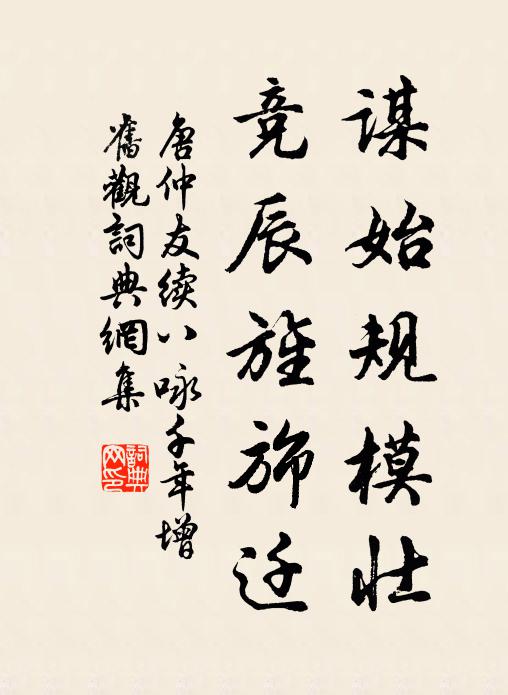 谋始规模壮
竞辰旌斾迁
唐仲友续八咏千年增
旧观词典网集
词典网印